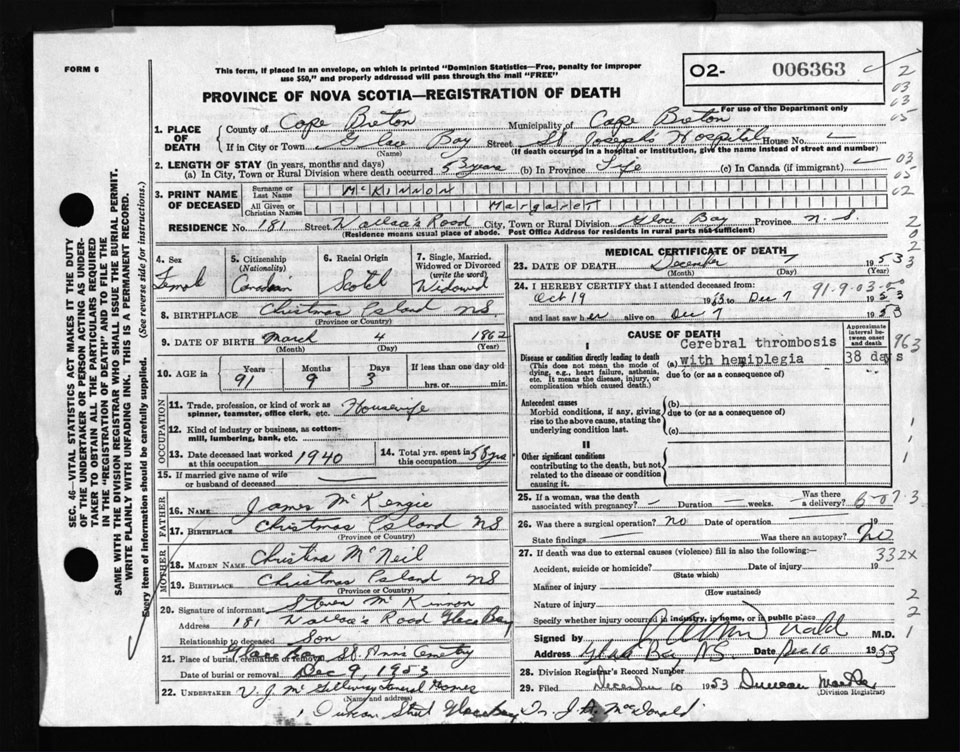 FORM 6
This form, if placed in an envelope, on which is printed "Dominion Statistics—Free, penalty for improper
use $50," and properly addressed will pass through the mail "FREE"
O2- 006363
For use of the Department only
PROVINCE OF NOVA SCOTIA—REGISTRATION OF DEATH
1. PLACE OF DEATH
County of Cape Breton Municipality of Cape Breton
If in City or Town Glace Bay Street St Joseph's Hospital House No.
(Name) (If death occurred in a hospital or institution, give the name instead of street and number)
2. LENGTH OF STAY (in years, months and days)
(a) In City, Town or Rural Division where death occurred 53 years (b) In Province Life (c) In Canada (if immigrant)
3. PRINT NAME OF DECEASED
Surname or Last Name McKINNON
All Given or Christian Names Margaret
RESIDENCE No. 181 Street Wallace's Road City, Town or Rural Division Glace Bay Province N.S.
(Residence means usual place of abode. Post Office Address for residents in rural parts not sufficient)
4. Sex Female
5. Citizenship (Nationality) Canadian
6. Racial Origin Scotch
7. Single, Married, Widowed or Divorced (write the word) Widowed
8. BIRTHPLACE Christmas Island NS.
(Province or Country)
9. DATE OF BIRTH March 4 1862
(Month) (Day) (Year)
10. AGE in Years 91 Months 9 Days 3 If less than one day old
hrs. or min.
OCCUPATION
11. Trade, profession, or kind of work as spinner, teamster, office clerk, etc. Housewife
12. Kind of industry or business, as cotton-mill, lumbering, bank, etc.
13. Date deceased last worked at this occupation 1940
14. Total yrs. spent in this occupation 58 yrs
15. If married give name of wife or husband of deceased
FATHER
16. Name James McKenzie
17. Birthplace Christmas Island NS
(Province or Country)
MOTHER
18. Maiden Name Christina McNeil
19. Birthplace Christmas Island NS
(Province or Country)
20. Signature of informant Steven McKinnon
Address 181 Wallace's Road Glace Bay
Relationship to deceased Son
21. Place of burial, cremation or removal Glace Bay St. Anns Cemetery
Date of burial or removal Dec 9, 1953
22. UNDERTAKER V.J. McGillivray Funeral Homes
(Name and address)
Duncan Street Glace Bay J.A. McDonald
MEDICAL CERTIFICATE OF DEATH
23. DATE OF DEATH December 7 1953
(Month) (Day) (Year)
24. I HEREBY CERTIFY that I attended deceased from:
Oct 19 1953 to Dec 7 1953
91-9-03-00
and last saw her alive on Dec 7 1953
CAUSE OF DEATH
Approximate interval between onset and death
I
Disease or condition directly leading to death
(This does not mean the mode of dying, e.g., heart failure, asthenia, etc. It means the disease, injury, or complication which caused death.)
(a) Cerebral thrombosis with hemiplegia 38 days
due to (or as a consequence of)
Antecedent causes
Morbid conditions, if any, giving rise to the above cause, stating the underlying condition last.
(b)
due to (or as a consequence of)
(c)
II
Other significant conditions
contributing to the death, but not related to the disease or condition causing it.
25. If a woman, was the death associated with pregnancy? — Duration — weeks. Was there a delivery?
26. Was there a surgical operation? No Date of operation 19
State findings — Was there an autopsy? No
332X
27. If death was due to external causes (violence) fill in also the following:—
Accident, suicide or homicide? Date of injury 19
(State which)
Manner of injury
(How sustained)
Nature of injury
Specify whether injury occurred in industry, in home, or in public place
Signed by M.D.
Address Glace Bay NS. Date Dec 10 1953
28. Division Registrar's Record Number
29. Filed December 10 1953 Duncan
(Division Registrar)
SEC. 46—VITAL STATISTICS ACT MAKES IT THE DUTY
OF THE UNDERTAKER OR PERSON ACTING AS UNDER-
TAKER TO OBTAIN ALL THE PARTICULARS REQUIRED
IN THE "REGISTRATION OF DEATH" AND TO FILE THE
SAME WITH THE DIVISION REGISTRAR WHO SHALL ISSUE THE BURIAL PERMIT.
WRITE PLAINLY WITH UNFADING INK. THIS IS A PERMANENT RECORD.
Every item of information should be carefully supplied. (See reverse side for instructions.)